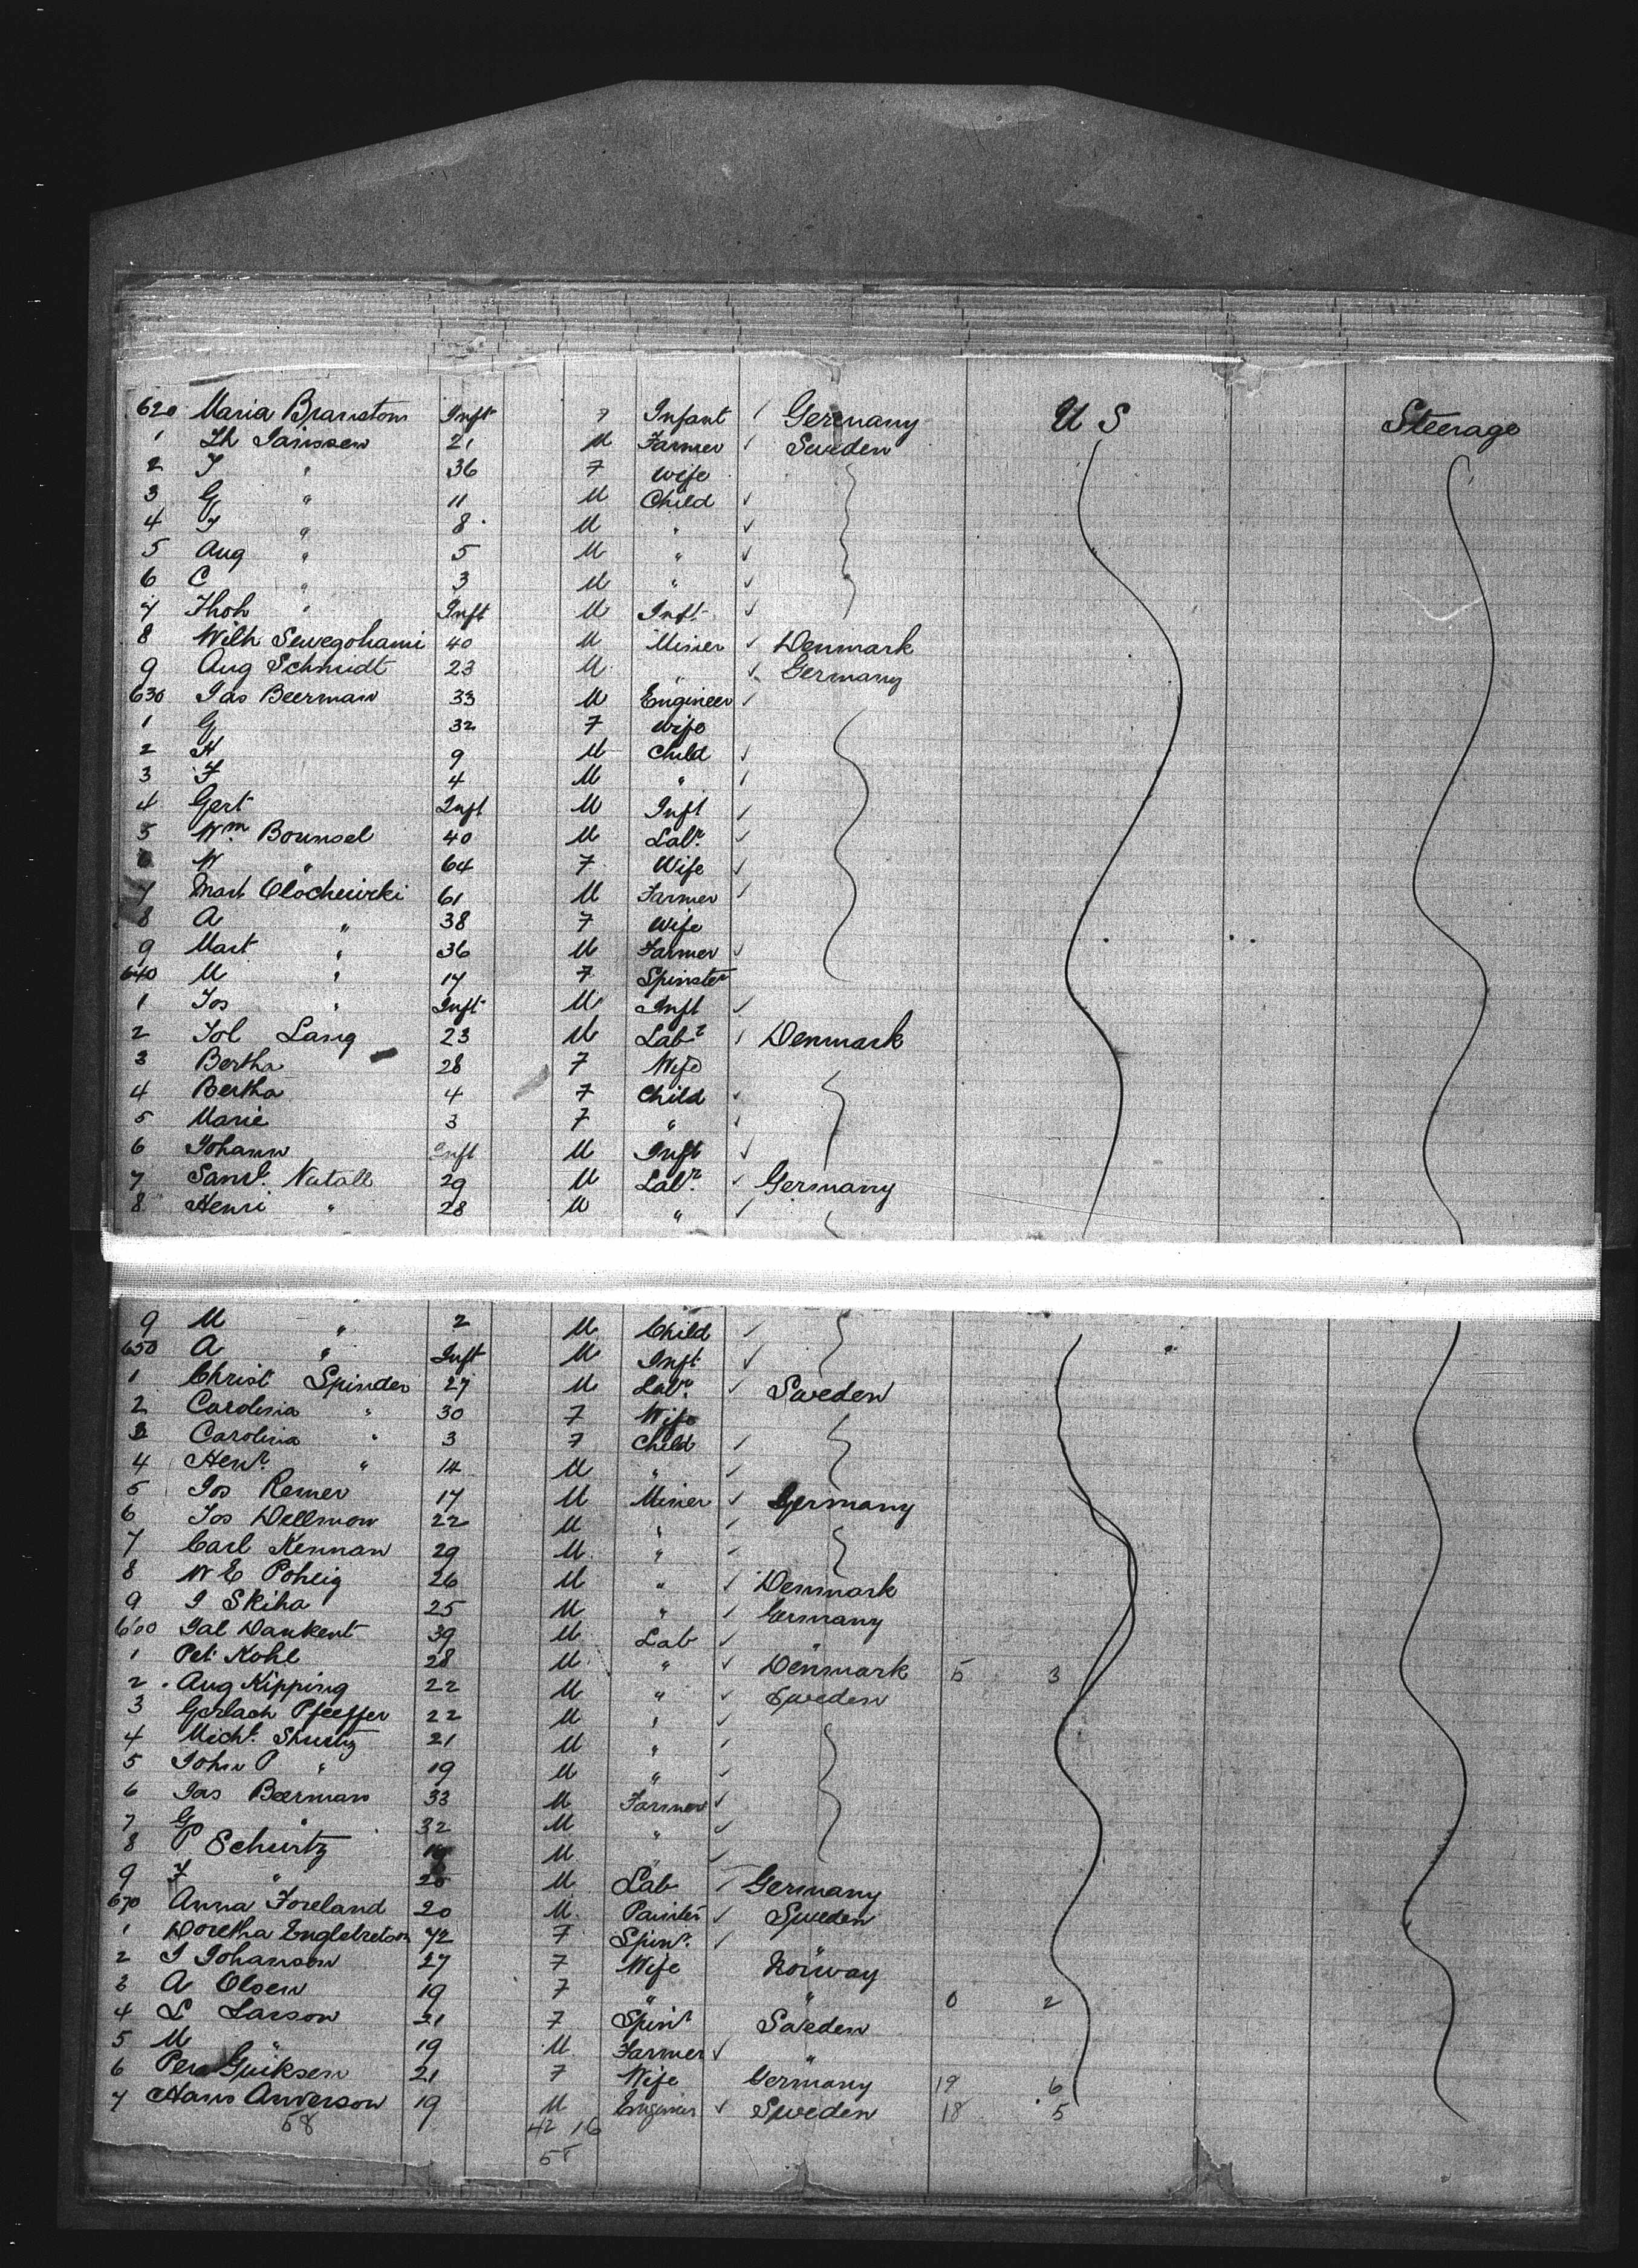 620 Maria Branstom Inft 7 Infant Germany U S Steerage
1 Th Janssen 21 M Farmer Sweden
2 J " 36 7 Wife
3 G " 11 M Child
4 J " 8 M "
5 Aug " 5 M "
6 C " 3 M "
7 Thoh " Inft M Inft
8 Wilh 40 M Miner Denmark
9 Aug Schmidt 23 M " Germany
630 Jas Beerman 33 M Engineer
1 G 32 7 Wife
2 H 9 M Child
3 F 4 M "
4 Gert Inft M Inft
5 Wm Bounsel 40 M Labr
6 W " 64 7 Wife
7 Mart 61 M Farmer
8 A " 38 7 Wife
9 Mart " 36 M Farmer
640 M " 17 7 Spinster
1 Jos " Inft M Inft
2 Jol Lang 23 M Labr Denmark
3 Bertha 28 7 Wife
4 Bertha 4 7 Child
5 Marie 3 7 "
6 Johann Inft M Inft
7 Saml Natall 29 M Labr Germany
8 Henri " 28 M "
9 M " 2 M Child
650 A " Inft M Inft
1 Christ Spinder 27 M Labr Sweden
2 Carolina " 30 7 Wife
3 Carolina " 3 7 Child
4 Henr " 14 M "
5 Jos Remer 17 M Miner Germany
6 Jos Dellmow 22 M "
7 Carl Kennan 29 M "
8 W E Pohlig 26 M " Denmark
9 J Skiha 25 M " Germany
660 Jal Dankent 39 M Lab "
1 Pet Kohl 28 M " Denmark 5 3
2 Aug Kipping 22 M " Sweden
3 Gerlach Pfeeffer 22 M "
4 Michl Shurtz 21 M "
5 John P " 19 M "
6 Jas Beerman 33 M Farmer
7 G " 32 M "
8 P Schurtz M "
9 F " 20 M Lab Germany
670 Anna Foreland 20 M Painter Sweden
1 Doretha Englebretson 42 7 Spinr "
2 J Johanson 27 7 Wife Norway
3 A Olsen 19 7 " " 0 2
4 L Larson 21 7 Spinr Sweden
5 M " 19 M Farmer "
6 Per 21 7 Wife Germany 19 6
7 Hans Anderson 19 M Engineer Sweden 18 5
58 42 16
58